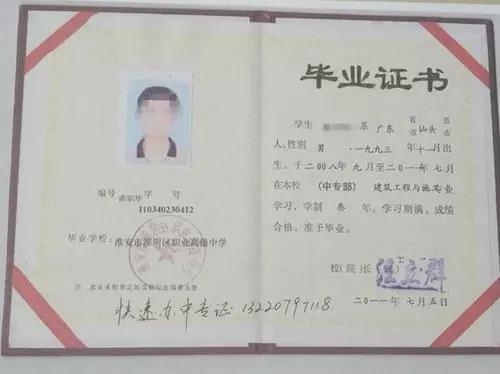 毕业证书
学生 系 广东 省市 汕头 县市
人,性别 男 ,一九九三 年十一月出
生,于二00八年九月至二0一一年七月
在本校 (中专部) 建筑工程与施工专业
学习,学制 叁 年,学习期满,成绩
合格,准予毕业。
校(院)长 汪立群
二0一一年 七月 五日
编号 淮职毕 字 号
110340230412
毕业学校: 淮安市淮阴区职业高级中学
快速办中专证 13220797118